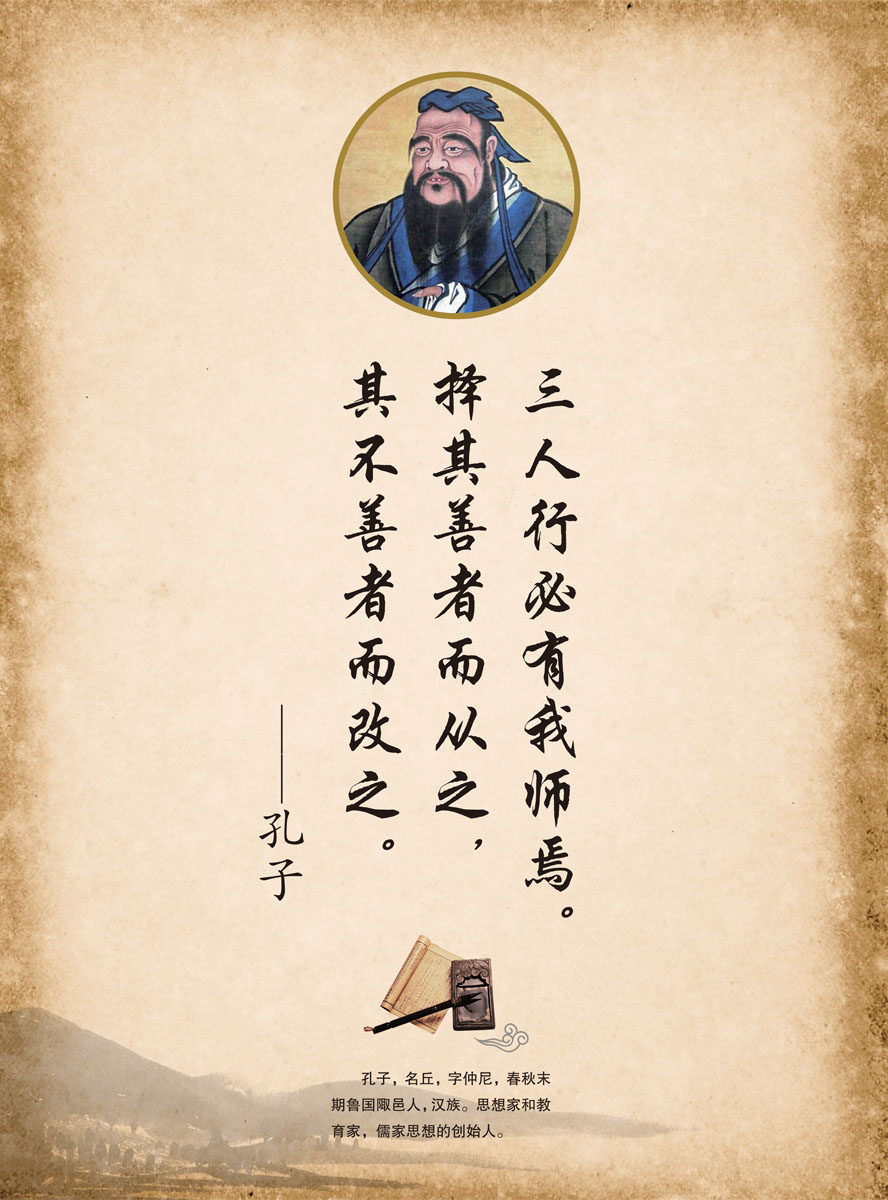 三人行必有我师焉。
择其善者而从之，
其不善者而改之。
——孔子
孔子，名丘，字仲尼，春秋末
期鲁国陬邑人，汉族。思想家和教
育家，儒家思想的创始人。